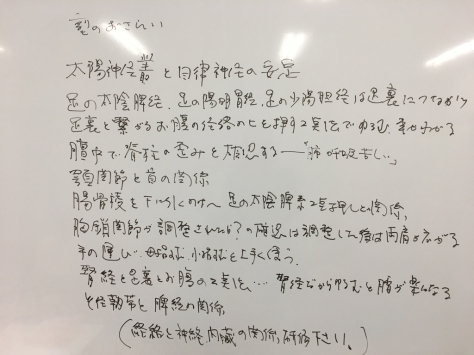 型のおさらい
太陽神経叢と自律神経の安定
足の太陰脾経、足の陽明胃経、足の少陽胆経は足裏につながり
足裏と繋がるお腹の経絡の上を押す2点法でゆるむ、事がわかる
膻中で脊柱の歪みを確認する―「肺 呼吸苦しい」
顎関節と首の関係
腸骨稜を下 足の太陰脾 2点押しと関係、
胸鎖関節が調整されたか?の確認は調整した後は両肩が広がる
手の運び… 母指球、小指球を上手く使う。
腎経と足裏とお腹の2点法… 腎経 ゆるむと腹が楽になる
靭帯と脾経の関係、
(経絡と神経、内臓の関係、研修下さい。)